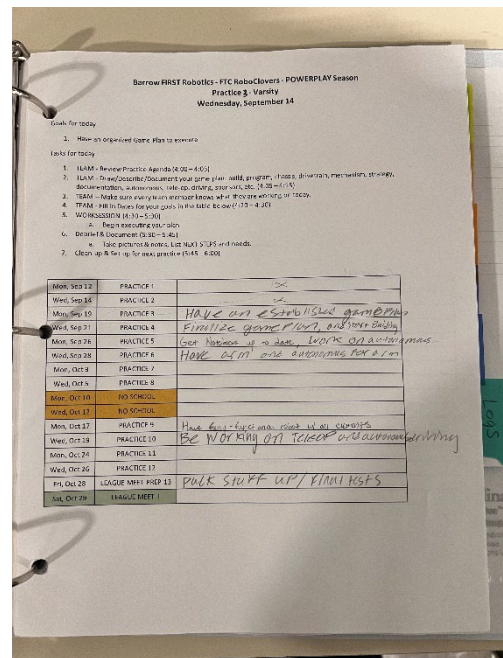 Barrow FIRST Robotics - FTC RoboClovers - POWERPLAY Season
Practice 2 - Varsity
Wednesday, September 14
Goals for today
1. Have an organized Game Plan to execute
Tasks for today
1. TEAM - Review Practice Agenda (4:00 – 4:05)
2. TEAM - Draw/Describe/Document your game plan: build, program, chassis, drivetrain, mechanism, strategy,
documentation, autonomous, tele-op, driving, sponsors, etc. (4:05 – 4:15)
3. TEAM – Make sure every team member knows what they are working on today.
4. TEAM - Fill in Dates for your goals in the table below (4:20 – 4:30)
5. WORKSESSION (4:30 – 5:30)
a. Begin executing your plan
6. Debrief & Document (5:30 – 5:45)
a. Take pictures & notes. List NEXT STEPS and needs.
7. Clean up & Set up for next practice (5:45 - 6:00)
Mon, Sep 12 PRACTICE 1 X
Wed, Sep 14 PRACTICE 2 X
Mon, Sep 19 PRACTICE 3 Have an established gameplan
Wed, Sep 21 PRACTICE 4 Finalize gameplan, and start Building
Mon, Sep 26 PRACTICE 5 Get Notebook up to date, work on autonomous
Wed, Sep 28 PRACTICE 6 Have arm and autonomous for arm
Mon, Oct 3 PRACTICE 7
Wed, Oct 5 PRACTICE 8
Mon, Oct 10 NO SCHOOL
Wed, Oct 12 NO SCHOOL
Mon, Oct 17 PRACTICE 9 Have fully-functional robot w/ all
Wed, Oct 19 PRACTICE 10 Be Working on TeleOP and autonomous driving
Mon, Oct 24 PRACTICE 11
Wed, Oct 26 PRACTICE 12
Fri, Oct 28 LEAGUE MEET PREP 13 Pack stuff up / Final tests
Sat, Oct 29 LEAGUE MEET 1
Logs